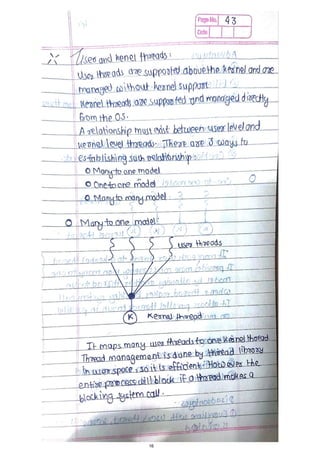 Page No. 43
Date
User and kenel threads :
User threads are supported above the kernel and are
managed without kernel support.
Kernel threads are supported and managed directly
from the OS.
A relationship must exist between user level and
kernel level threads. There are 3 ways to
establishing such relationship
Many to one model
One to one model
Many to many model
Many to one model :
user threads
K
Kernel thread
It maps many user threads to one kernel thread
Thread management is done by thread library
in user space, so it is efficient. However the
entire process will block if a thread makes a
blocking system call.
18